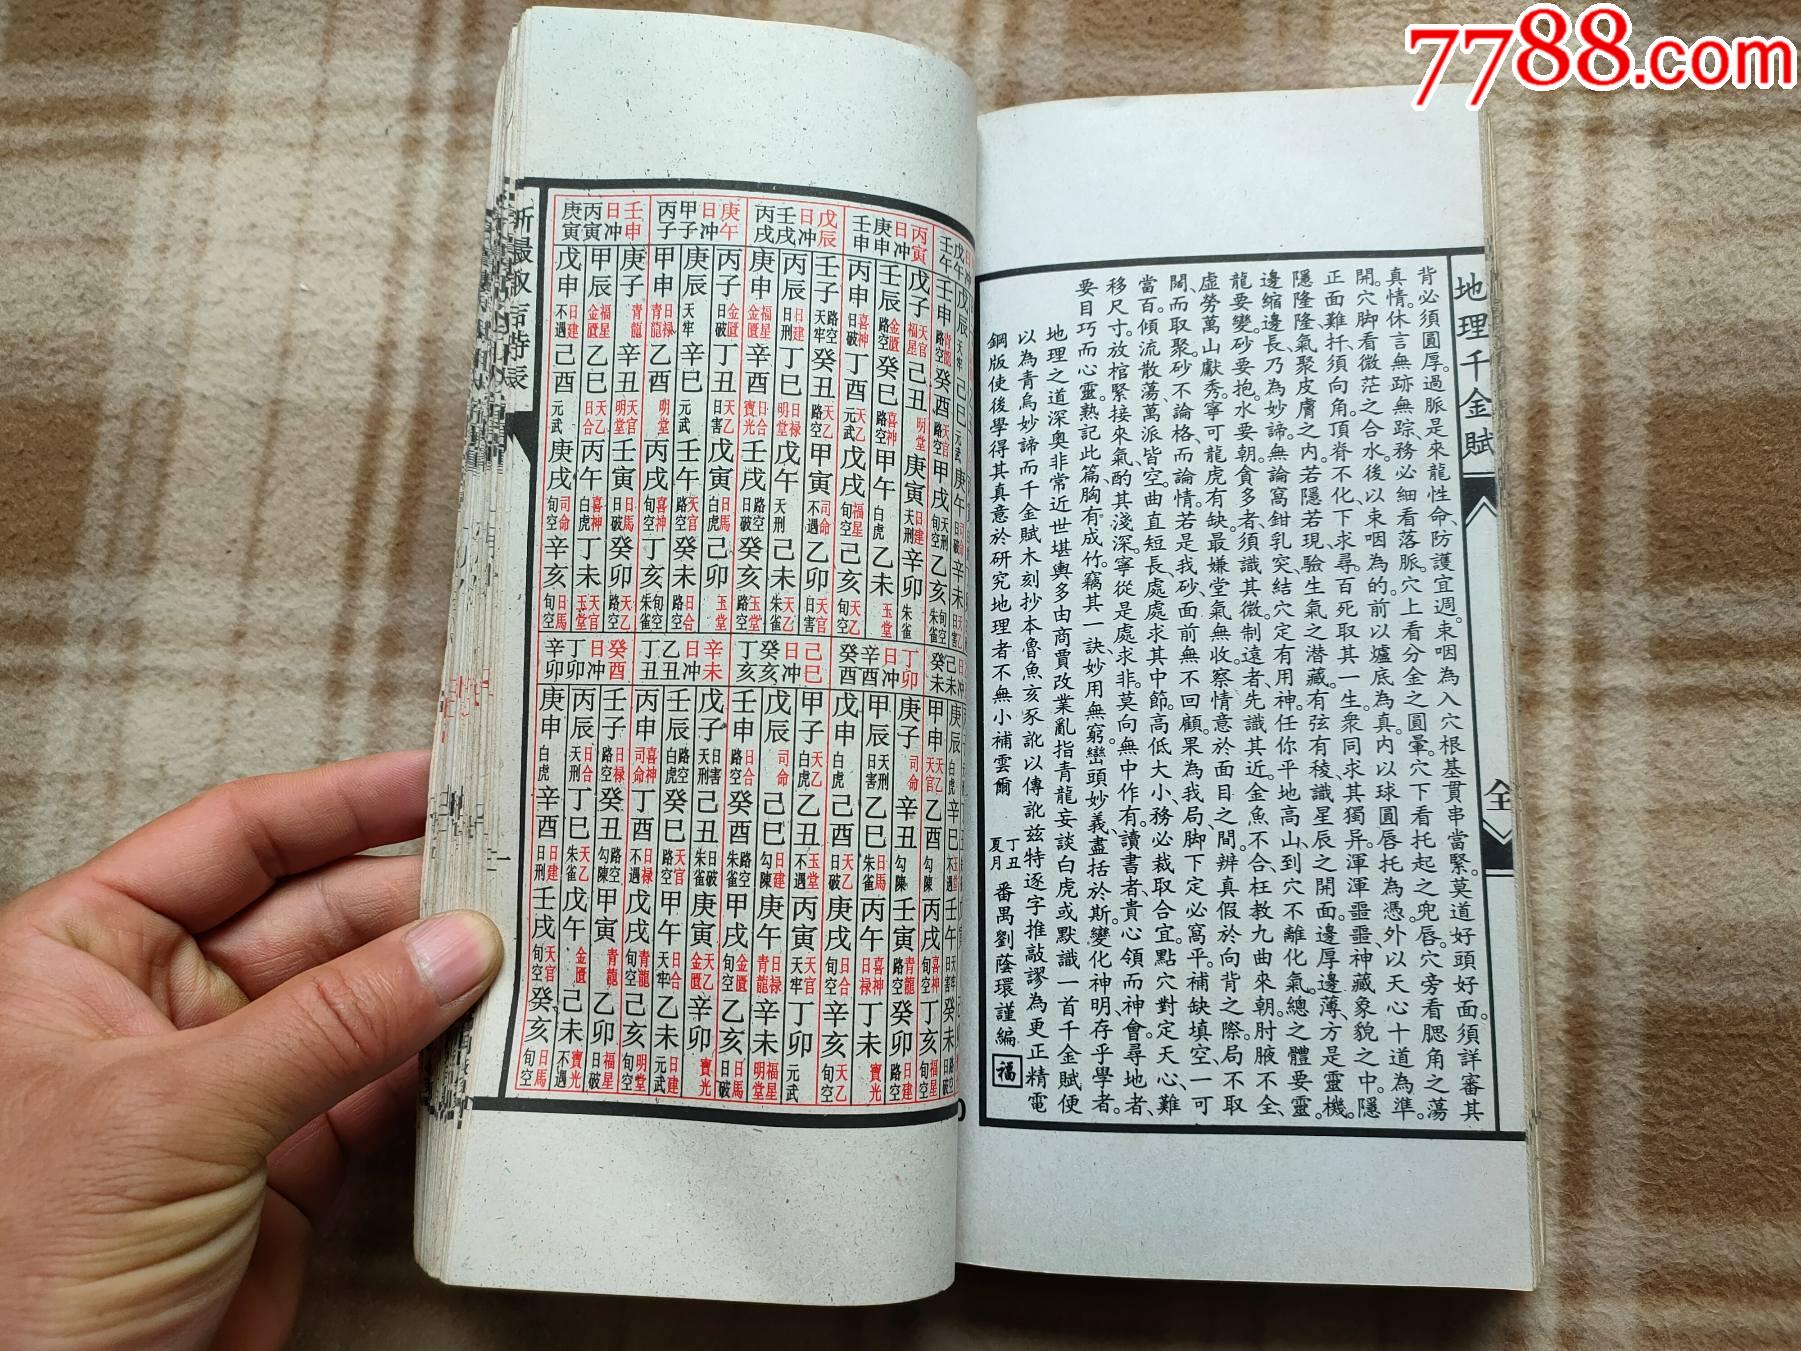 7788.com
地理千金賦
全
背必須圓厚。過脈是來龍性命、防護宜週。束咽為入穴根基、貫串當緊。莫道好頭好面、須詳審其
真情。休言無跡無踪、務必細看落脈。穴上看分金之圓暈。穴下看托起之兜唇。穴旁看腮角之蕩
開。穴脚看微茫之合水。後以束咽為的。前以爐底為真。內以球圓唇托為憑。外以天心十道為準。
正面難扦須向角。頂脊不化下求尋。百死取其一生。衆同求其獨异。渾渾噩噩神藏象貌之中。隱
隱隆隆氣聚皮膚之內。若隱若現、驗生氣之潛藏。有弦有稜、識星辰之開面。邊厚邊薄方是靈機。
邊縮邊長乃為妙諦。無論窩鉗乳突、結穴定有用神。任你平地高山、到穴不離化氣。總之體要靈。
龍要變。砂要抱。水要朝。貪多者須識其微。制遠者先識其近。金魚不合、枉教九曲來朝。肘腋不全、
虛勞萬山獻秀。寧可龍虎有缺。最嫌堂氣無收。察情意於面目之間。辨真假於向背之際。局不取
闊而取聚。砂不論格而論情。若是我砂、面前無不回顧。果為我局、脚下定必窩平。補缺填空、一可
當百。傾流散蕩、萬派皆空。曲直短長、處處求其中節。高低大小、務必裁取合宜。點穴對定天心、難
移尺寸。放棺緊接來氣、酌其淺深。寧從是處求非。莫向無中作有。讀書者貴心領而神會。尋地者、
要目巧而心靈。熟記此篇、胸有成竹。竊其一訣、妙用無窮。巒頭妙義、盡括於斯。變化神明、存乎學者。
地理之道深奥非常近世堪輿多由商賈改業亂指青龍妄談白虎或默識一首千金賦便
以為青烏妙諦而千金賦木刻抄本魯魚亥豕訛以傳訛兹特逐字推敲謬為更正精電
鋼版使後學得其真意於研究地理者不無小補雲爾
丁丑夏月 番禺劉蔭環謹編 福
丙寅日冲 庚申 壬申
戊子 天官 福星 己丑 明堂 庚寅 日建 天刑 辛卯 朱雀
壬辰 金匱 路空 癸巳 喜神 路空 甲午 白虎 乙未 玉堂
丙申 喜神 日破 丁酉 天乙 元武 戊戌 福星 旬空 己亥 天乙 旬空
戊辰日冲 壬戌 丙戌
壬子 路空 天牢 癸丑 天乙 路空 甲寅 司命 不遇 乙卯 天官 日害
丙辰 日建 日刑 丁巳 日禄 明堂 戊午 天刑 己未 天乙 朱雀
庚申 福星 金匱 辛酉 日合 寶光 壬戌 路空 日破 癸亥 玉堂 路空
庚午日冲 甲子 丙子
丙子 金匱 日破 丁丑 天乙 日害 戊寅 日馬 白虎 己卯 玉堂
庚辰 天牢 辛巳 元武 壬午 天官 路空 癸未 日合 路空
甲申 日禄 青龍 乙酉 明堂 丙戌 喜神 旬空 丁亥 旬空 朱雀
壬申日冲 丙寅 庚寅
庚子 青龍 辛丑 天官 明堂 壬寅 日馬 日破 癸卯 天乙 路空
甲辰 福星 金匱 乙巳 天乙 日合 丙午 喜神 白虎 丁未 天官 玉堂
戊申 日建 不遇 己酉 元武 庚戌 司命 旬空 辛亥 日馬 旬空
丁卯日冲 辛酉 癸酉
庚子 司命 辛丑 勾陳 壬寅 青龍 路空 癸卯 日建 路空
甲辰 天刑 日害 乙巳 日馬 朱雀 丙午 喜神 日禄 丁未 寶光
戊申 白虎 己酉 天乙 日破 庚戌 日合 天牢 辛亥 天乙 旬空
己巳日冲 癸亥 丁亥
甲子 天乙 白虎 乙丑 玉堂 不遇 丙寅 天官 天牢 丁卯 元武
戊辰 司命 己巳 日建 勾陳 庚午 日禄 青龍 辛未 福星 明堂
壬申 日合 路空 癸酉 路空 朱雀 甲戌 金匱 旬空 乙亥 日馬 日破
辛未日冲 乙丑 丁丑
戊子 日害 天刑 己丑 日破 朱雀 庚寅 天乙 金匱 辛卯 寶光
壬辰 路空 白虎 癸巳 天官 路空 甲午 日合 天牢 乙未 日建 元武
丙申 喜神 司命 丁酉 日禄 不遇 戊戌 青龍 旬空 己亥 明堂 旬空
癸酉日冲 丁卯 辛卯
壬子 日禄 路空 癸丑 路空 勾陳 甲寅 青龍 乙卯 福星 日破
丙辰 日合 天刑 丁巳 天乙 朱雀 戊午 金匱 己未 寶光 不遇
庚申 白虎 辛酉 日建 日刑 壬戌 天官 旬空 癸亥 日馬 旬空